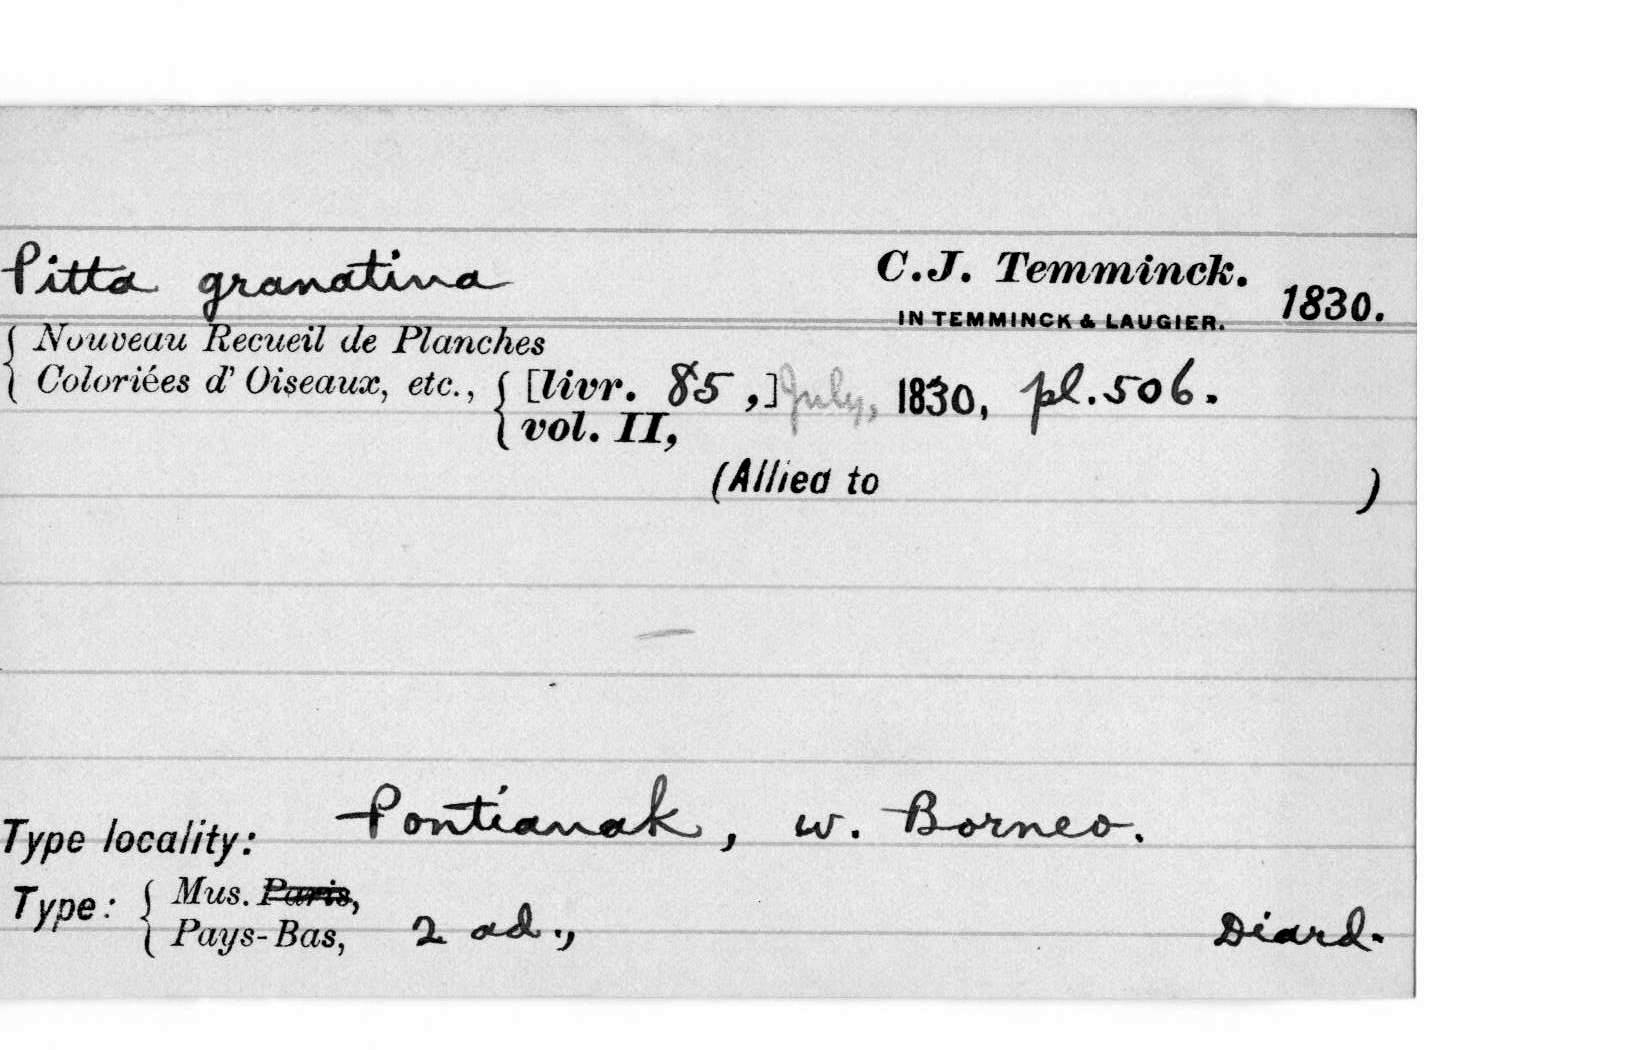 Pitta granatina C.J. Temminck. 1830.
IN TEMMINCK & LAUGIER.
Nouveau Recueil de Planches
Coloriées d' Oiseaux, etc., [livr. 85,] July, 1830, pl. 506.
vol. II,
(Allied to )
Type locality: Pontianak, w. Borneo.
Type: Mus. Paris,
Pays-Bas, 2 ad., Diard.